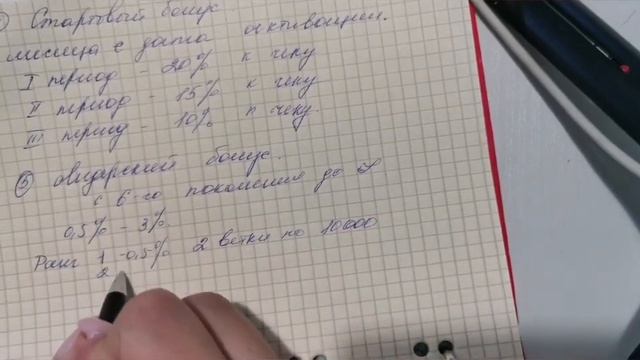 Стартовый бонус
месяца с дата активации.
I период - 20% к чеку
II период - 15% к чеку
III период - 10% к чеку.
⑤ Лидерский бонус.
с 6-го поколения до
0,5% - 3%.
Ранг 1 - 0,5% 2 ветки по 10000
2